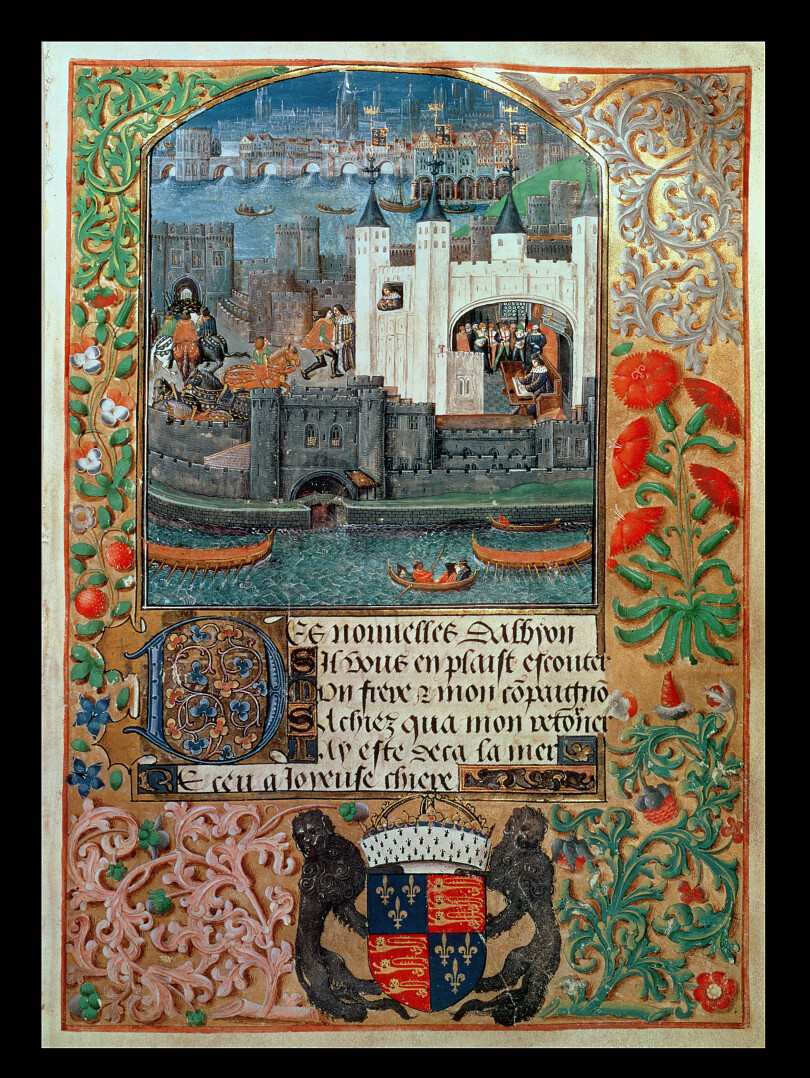 Des nouuelles dalbyon
Sil vous en plaist escouter
Mon frere & mon cōpaignō
Sachiez qua mon retōrner
Iay este deca la mer
Receu a Joyeuse chiere